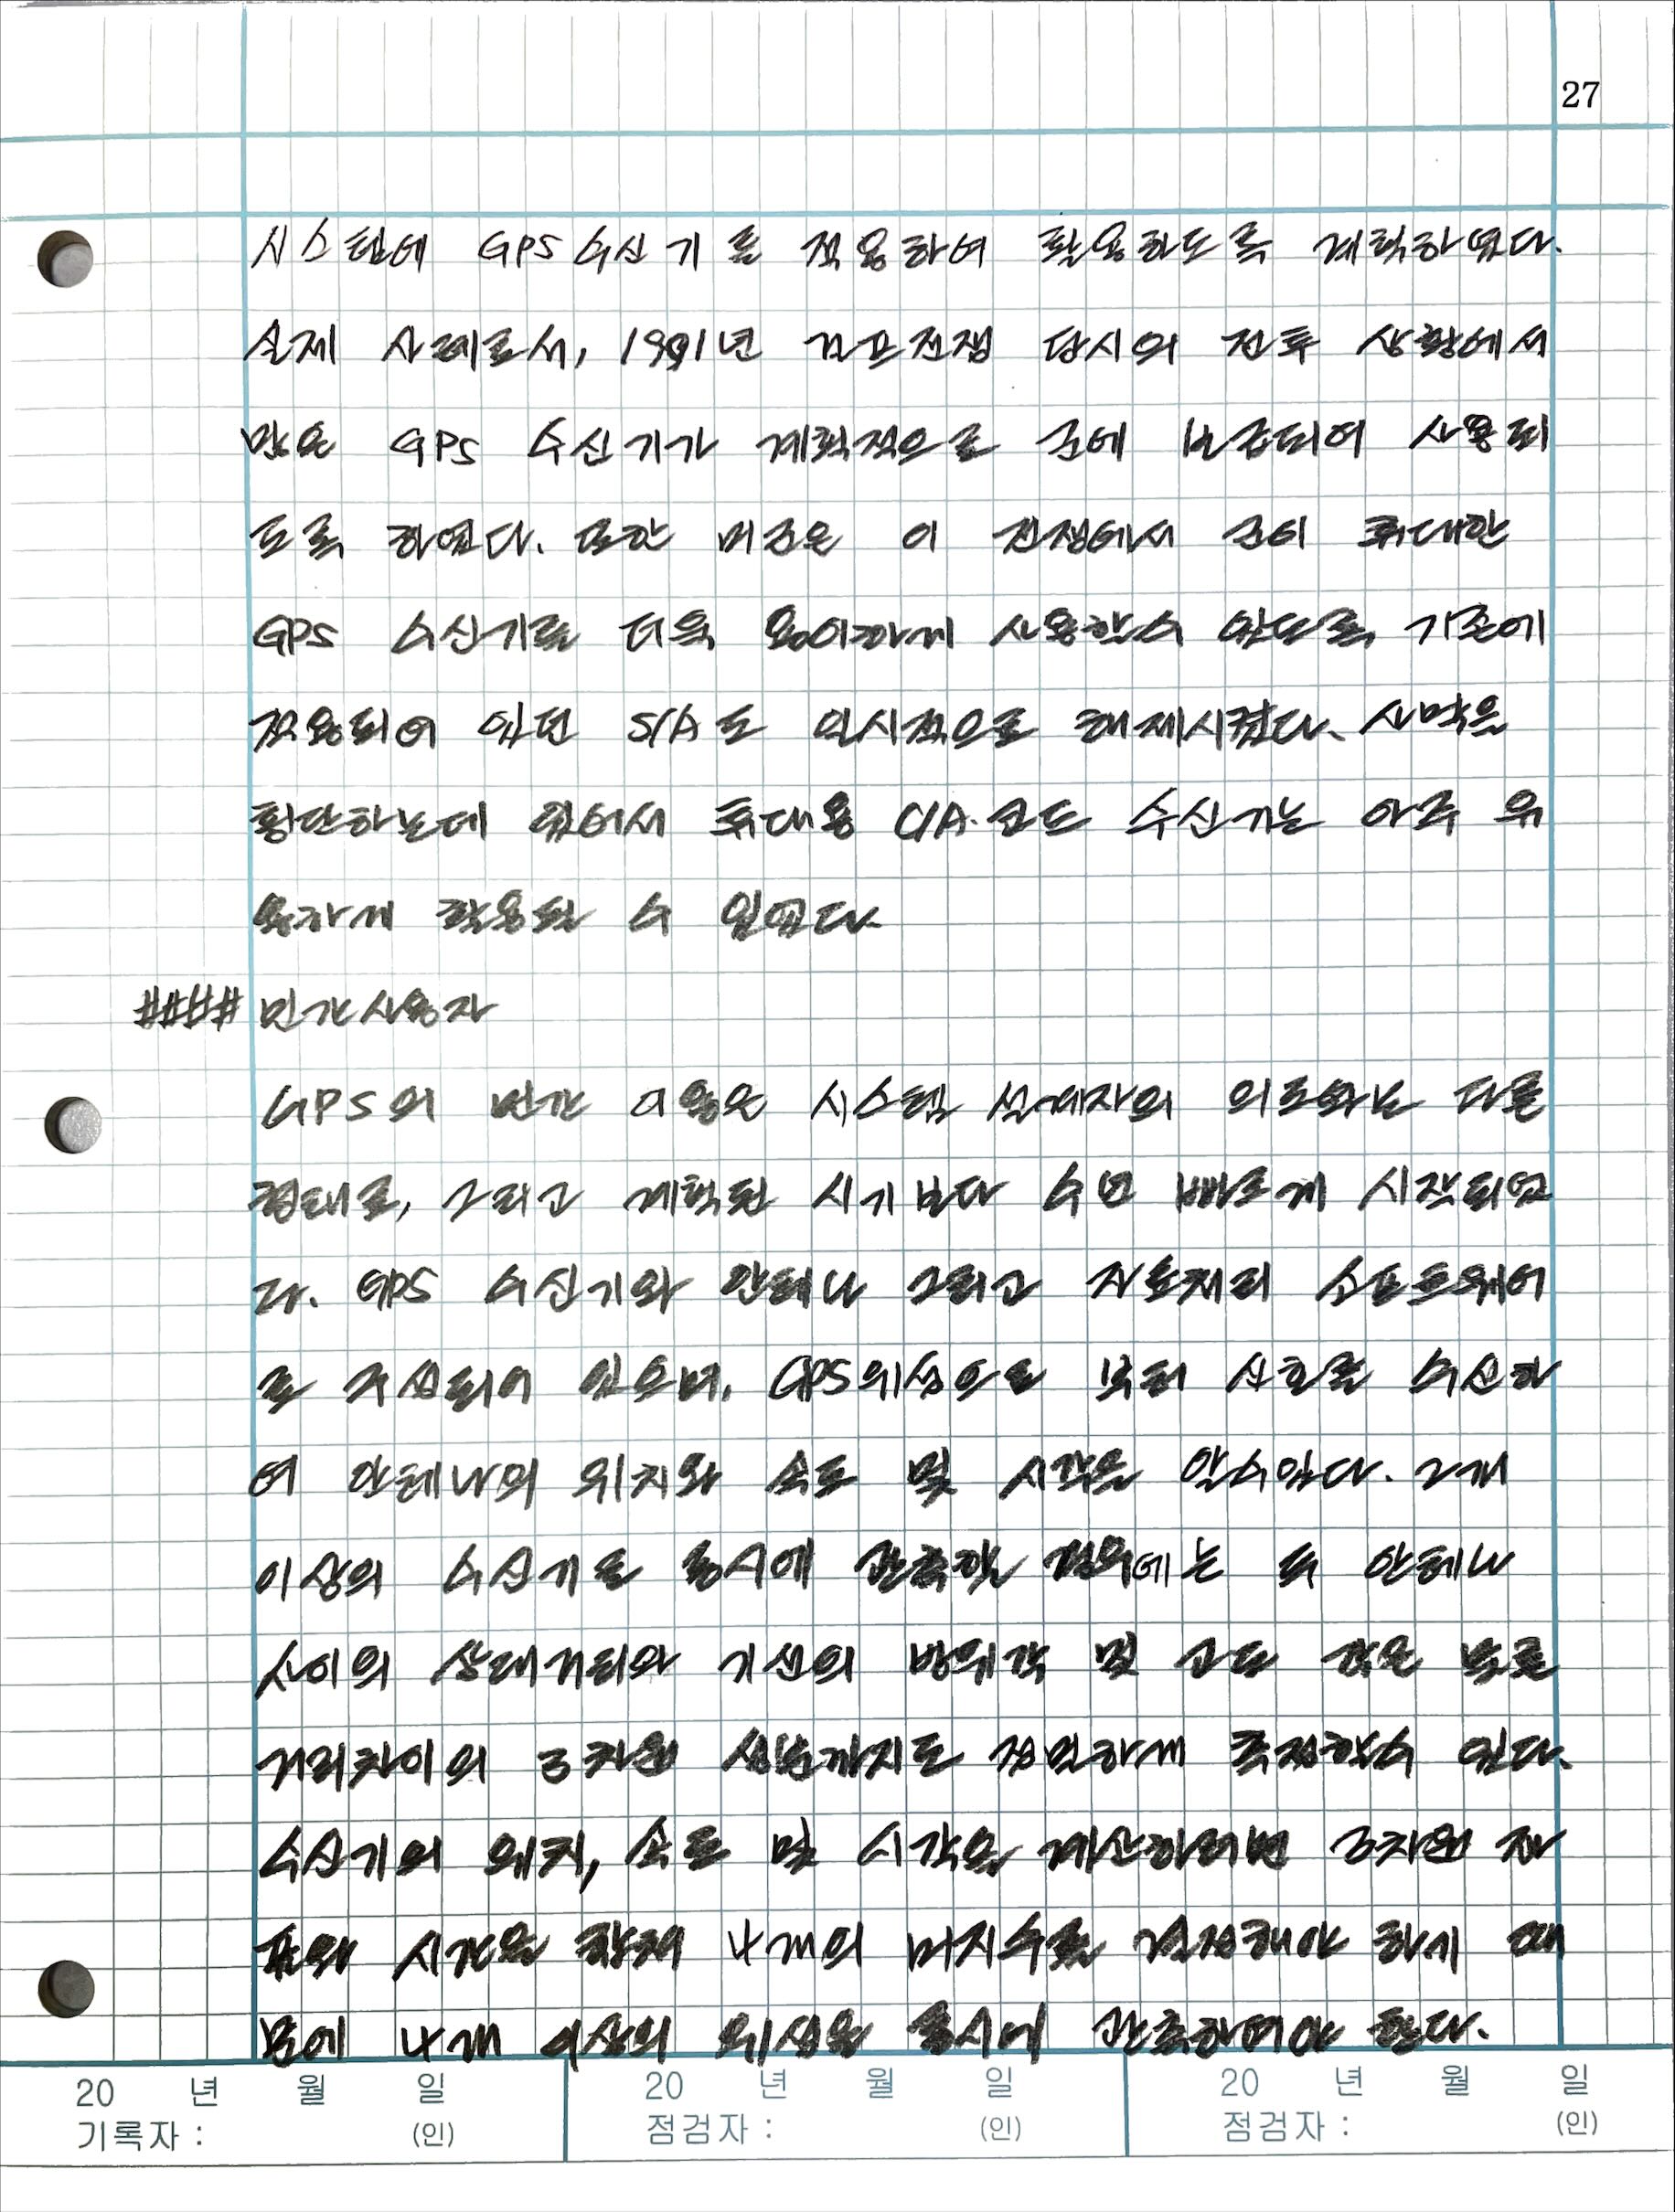 27
시스템에 GPS 수신기를 적용하여 활용하도록 계획하였다.
실제 사례로서, 1991년 걸프전쟁 당시의 전투 상황에서
많은 GPS 수신기가 계획적으로 군에 보급되어 사용되
도록 하였다. 또한 미군은 이 전쟁에서 군이 휴대한
GPS 수신기를 더욱 용이하게 사용할수 있도록, 기존에
적용되어 있던 S/A도 일시적으로 해제시켰다. 사막을
횡단하는데 있어서 휴대용 C/A.코드 수신기는 아주 유
용하게 활용될 수 있었다.
#### 민간사용자
GPS의 민간 이용은 시스템 설계자의 의도와는 다른
형태로, 그리고 계획된 시기보다 수년 빠르게 시작되었
다. GPS 수신기와 안테나 그리고 자료처리 소프트웨어
로 구성되어 있으며, GPS위성으로 부터 신호를 수신하
여 안테나의 위치와 속도 및 시각을 알수있다. 2개
이상의 수신기로 동시에 관측할 경우에는 두 안테나
사이의 상대거리와 기선의 방위각 및 고도 각은 물론
거리차이의 3차원 성분까지도 정밀하게 측정할수 있다.
수신기의 위치, 속도 및 시각을 계산하려면 3차원 좌
표와 시간을 합쳐 4개의 미지수를 결정해야 하기 때
문에 4개 이상의 위성을 동시에 관측하여야 한다.
20 년 월 일 20 년 월 일 20 년 월 일
기록자 : (인) 점검자 : (인) 점검자 : (인)